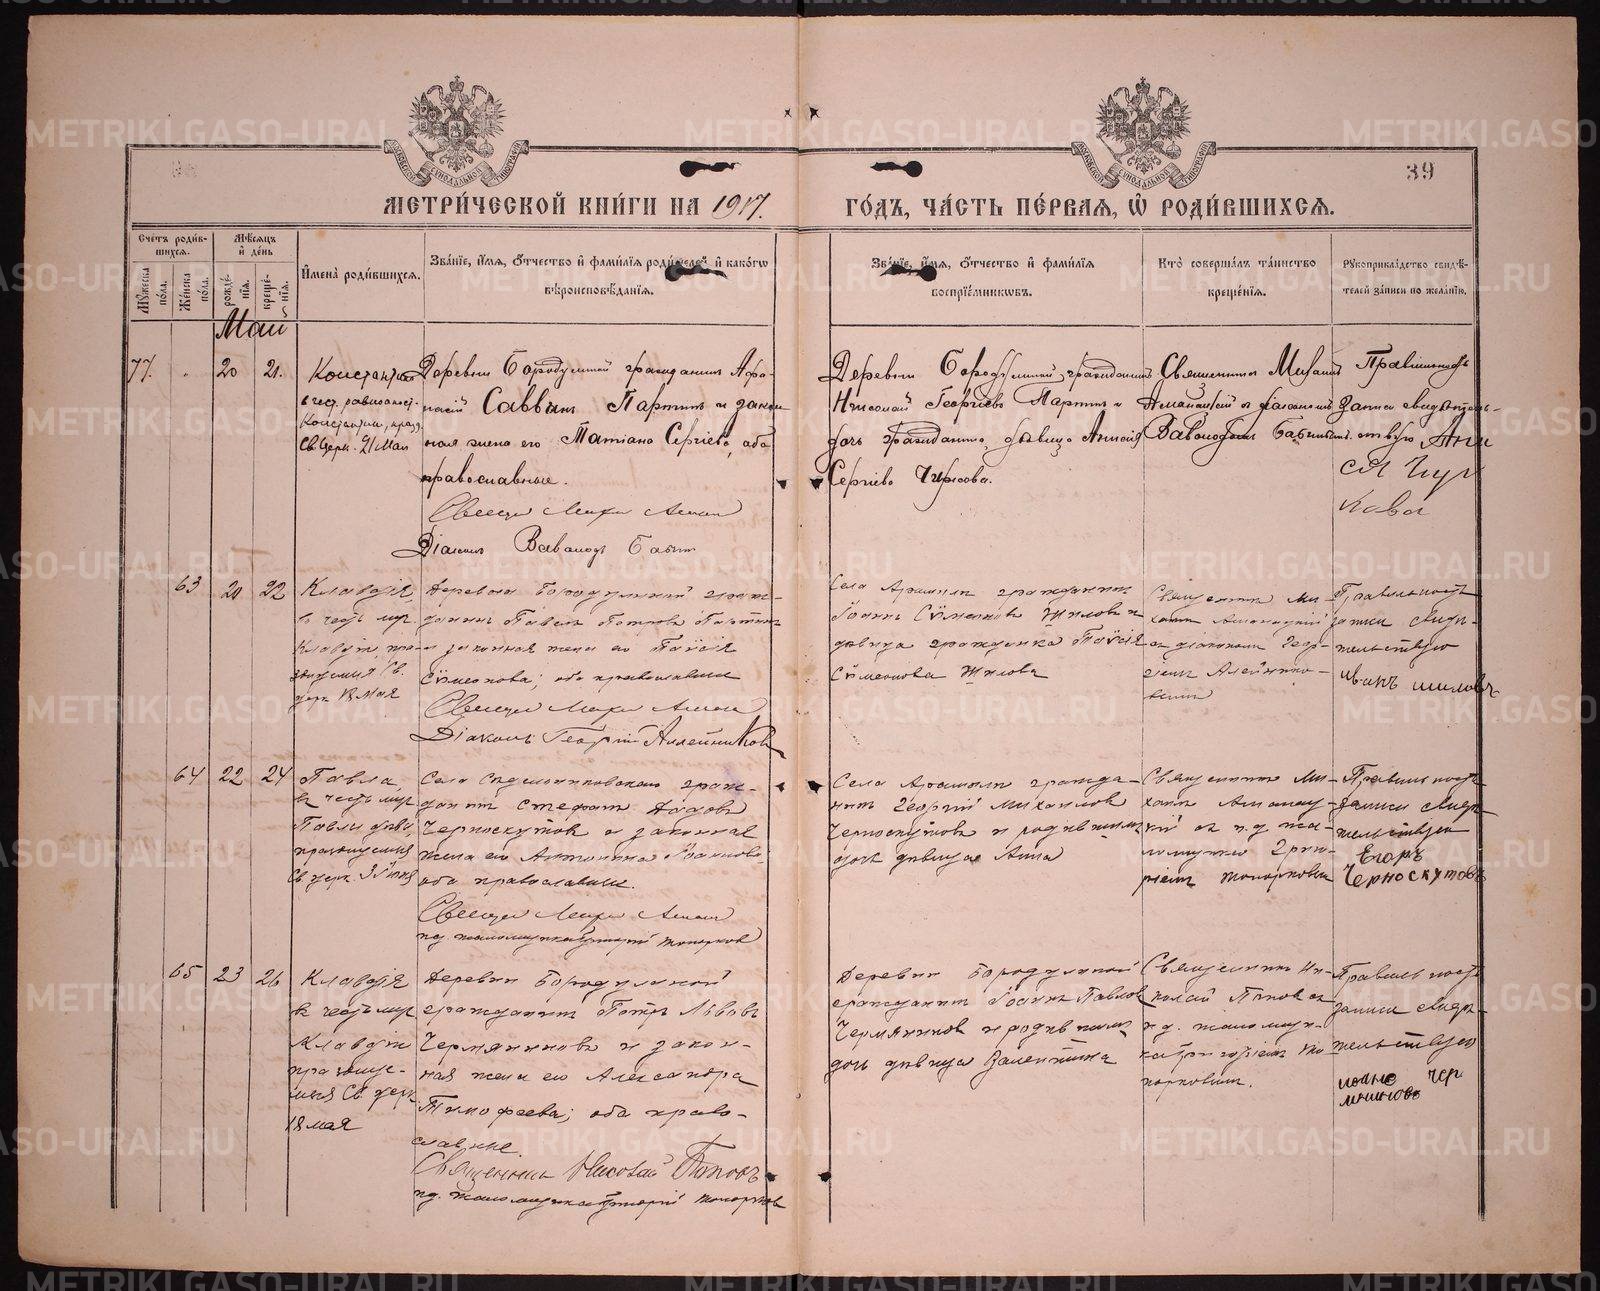 39
МЕТРИ́ЧЕСКОЙ КНИ́ГИ НА 1917.
ГО́ДЪ, ЧА́СТЬ ПЕ́РВАЯ, Ѡ РОДИ́ВШИХСЯ.
Счетъ роди́в-
шихся.
Мꙋжеска по́ла.
Же́нска по́ла.
Мѣ́сяцъ и де́нь
рожде́нїя.
креще́нїя.
Имена̀ роди́вшихся.
Зва́нїе, и́мя, о́тчество и фами́лїя роди́телей, и како́гѡ
вѣроисповѣ́данїя.
Зва́нїе, и́мя, о́тчество и фами́лїя
воспрїе́мникѡвъ.
Кто̀ соверша́лъ та́инство
креще́нїя.
Рꙋкоприкла́дство свидѣ́-
телей за́писи по жела́нїю.
Май
77. 20 21.
Константинъ
в честь равноапост.
Константина, празд.
Св Церк. 21 Мая
Деревни Бородулиной гражданинъ Афа-
насій Саввинъ Партинъ и закон
ная жена его Татіана Сергіева, оба
православные.
Діаконъ Бабинъ
Деревни Бородулиной, гражданинъ
Николай Георгіевъ Партинъ и
дочь гражданина, дѣвица Анисія
Сергіева Чуркова.
Священникъ Михаилъ
съ діакономъ
Бабинымъ.
Правильность
записи свидѣтель-
ствую Ани
сія Чур
кова
63 20 22
Клавдія,
въ честь муч.
Клавдіи, пра-
зднуемыя Св.
церк 18 Мая
Деревни Бородулиной граж-
данинъ Павелъ Петровъ Партинъ
и законная жена его Паисія
Сѵмеонова; оба православные
Діаконъ Георгій Алейников
Села Арамили гражданинъ
Іоаннъ Сѵмеоновъ Шиловъ и
дѣвица гражданка Паисія
Сѵмеонова Шилова
Священникъ Ми-
хаилъ
съ діакономъ Геор-
гіемъ Алейнико-
вымъ
Правильность
записи свидѣ-
тельствую
Иванъ шиловъ
64 22 24
Павла,
въ честь муч.
Павлы дѣвы,
празднуемыя
Св церк. 3 Іюня
Села гражд-
данинъ Стефанъ
Черноскутовъ и законная
жена его Антонина Іоаннова,
оба православные.
пд. псаломщика Григорій Топорков
Села Арамили гражда-
нинъ Георгій Михаиловъ
Черноскутовъ и родившим.
дочь дѣвица Анна
Священникъ Ми-
хаилъ
съ и. д пса-
ломщика Григо-
ріемъ Топорковым
Правильность
записи свидѣ-
тельствую
Егоръ
Черноскутовъ
65 23 26
Клавдія
въ честь муч
Клавдіи
празднуе-
мыя Св. церк
18 мая
Деревни Бородулиной
гражданинъ Петръ Львовъ
Чермяниновъ и закон-
ная жена его Александра
Тимофеева; оба право-
славные.
Священникъ Николай Поповъ
пд. псаломщика Григорій Топорков
Деревни Бородулиной
гражданинъ Іоаннъ Павлов
Чермяниновъ и родившим.
дочь дѣвица Валентина
Священникъ Ни-
колай Поповъ съ
и д. псаломщи-
ка Григоріемъ То-
порковымъ.
Правильность
записи свидѣ-
тельствую